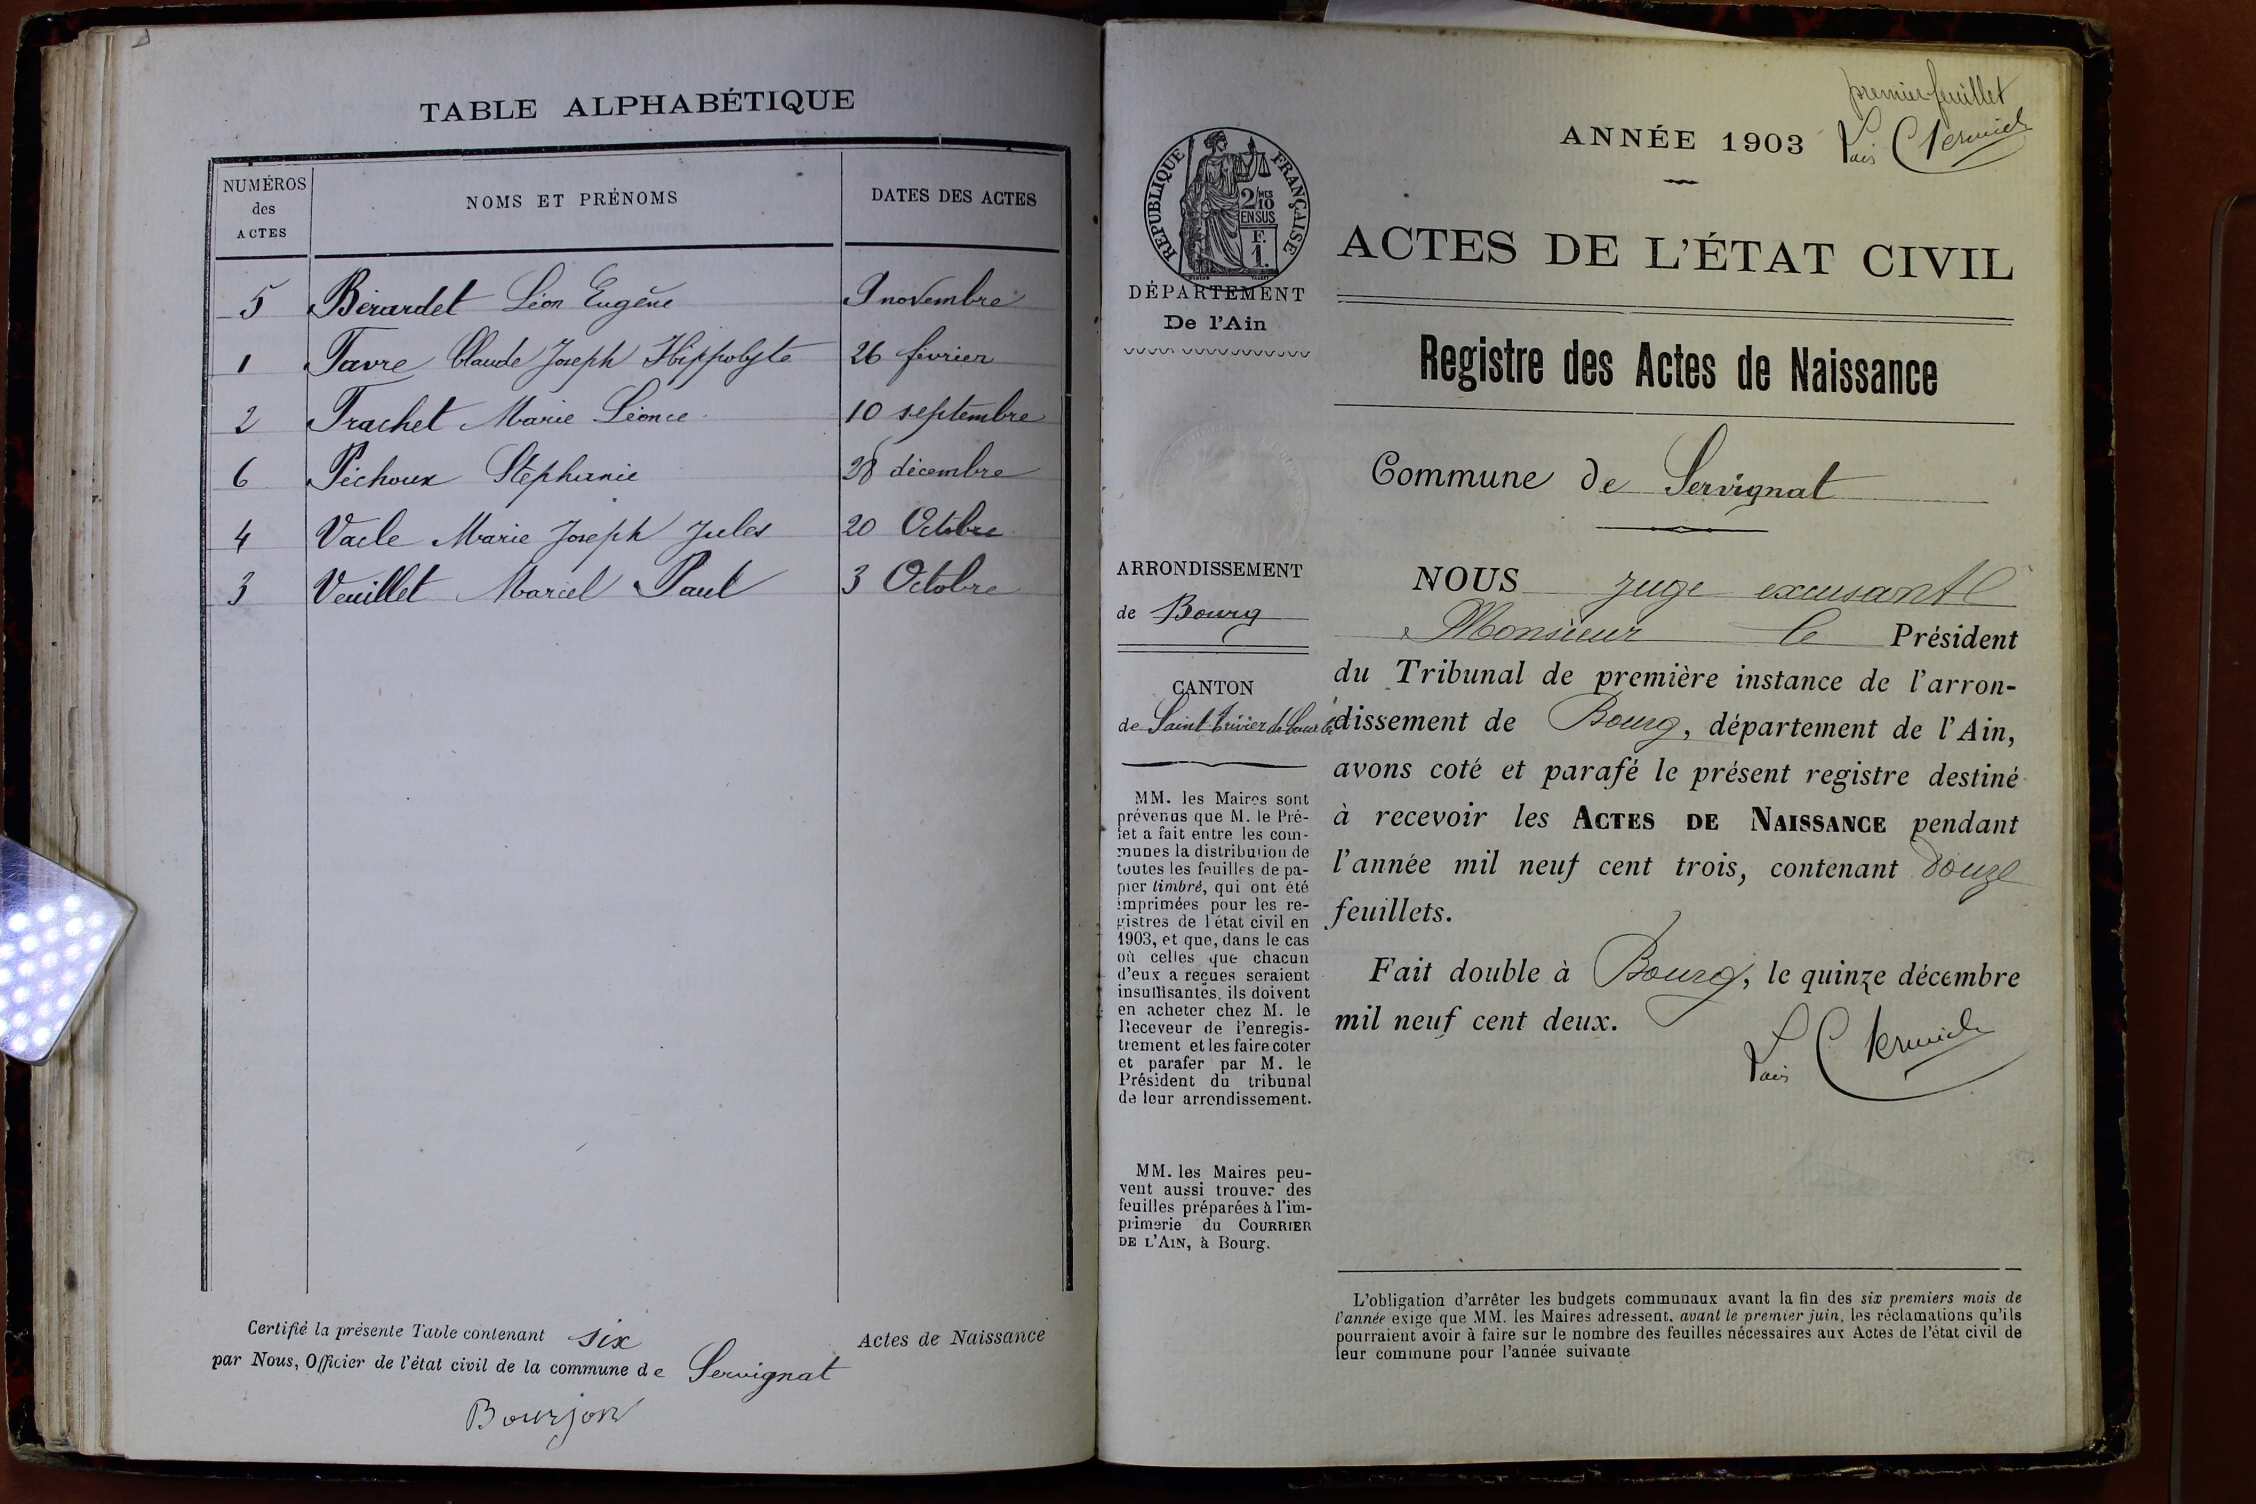 TABLE ALPHABÉTIQUE
NUMÉROS des ACTES
NOMS ET PRÉNOMS
DATES DES ACTES
5 Bérardet Léon Eugène 9 novembre
1 Favre Claude Joseph Hippolyte 26 février
2 Frachet Marie Léonce 10 septembre
6 Péchoux Stéphanie 28 décembre
4 Vacle Marie Joseph Jules 20 Octobre
3 Veuillet Marcel Paul 3 Octobre
Certifié la présente Table contenant six Actes de Naissance
par Nous, Officier de l'état civil de la commune de Servignat
Bourjon
premier feuillet
ANNÉE 1903
RÉPUBLIQUE FRANÇAISE
2/10MES
EN SUS
F.
1.
DÉPARTEMENT
De l'Ain
ARRONDISSEMENT
de Bourg
CANTON
de Saint Trivier de Courtes
MM. les Maires sont
prévenus que M. le Pré-
fet a fait entre les com-
munes la distribution de
toutes les feuilles de pa-
pier timbré, qui ont été
imprimées pour les re-
gistres de l'état civil en
1903, et que, dans le cas
où celles que chacun
d'eux a reçues seraient
insuffisantes, ils doivent
en acheter chez M. le
Receveur de l'enregis-
trement et les faire coter
et parafer par M. le
Président du tribunal
de leur arrondissement.
MM. les Maires peu-
vent aussi trouver des
feuilles préparées à l'im-
primerie du COURRIER
DE L'AIN, à Bourg.
ACTES DE L'ÉTAT CIVIL
Registre des Actes de Naissance
Commune de Servignat
NOUS juge excusant
Monsieur le Président
du Tribunal de première instance de l'arron-
dissement de Bourg, département de l'Ain,
avons coté et parafé le présent registre destiné
à recevoir les ACTES DE NAISSANCE pendant
l'année mil neuf cent trois, contenant douze
feuillets.
Fait double à Bourg, le quinze décembre
mil neuf cent deux.
L'obligation d'arrêter les budgets communaux avant la fin des six premiers mois de
l'année exige que MM. les Maires adressent, avant le premier juin, les réclamations qu'ils
pourraient avoir à faire sur le nombre des feuilles nécessaires aux Actes de l'état civil de
leur commune pour l'année suivante